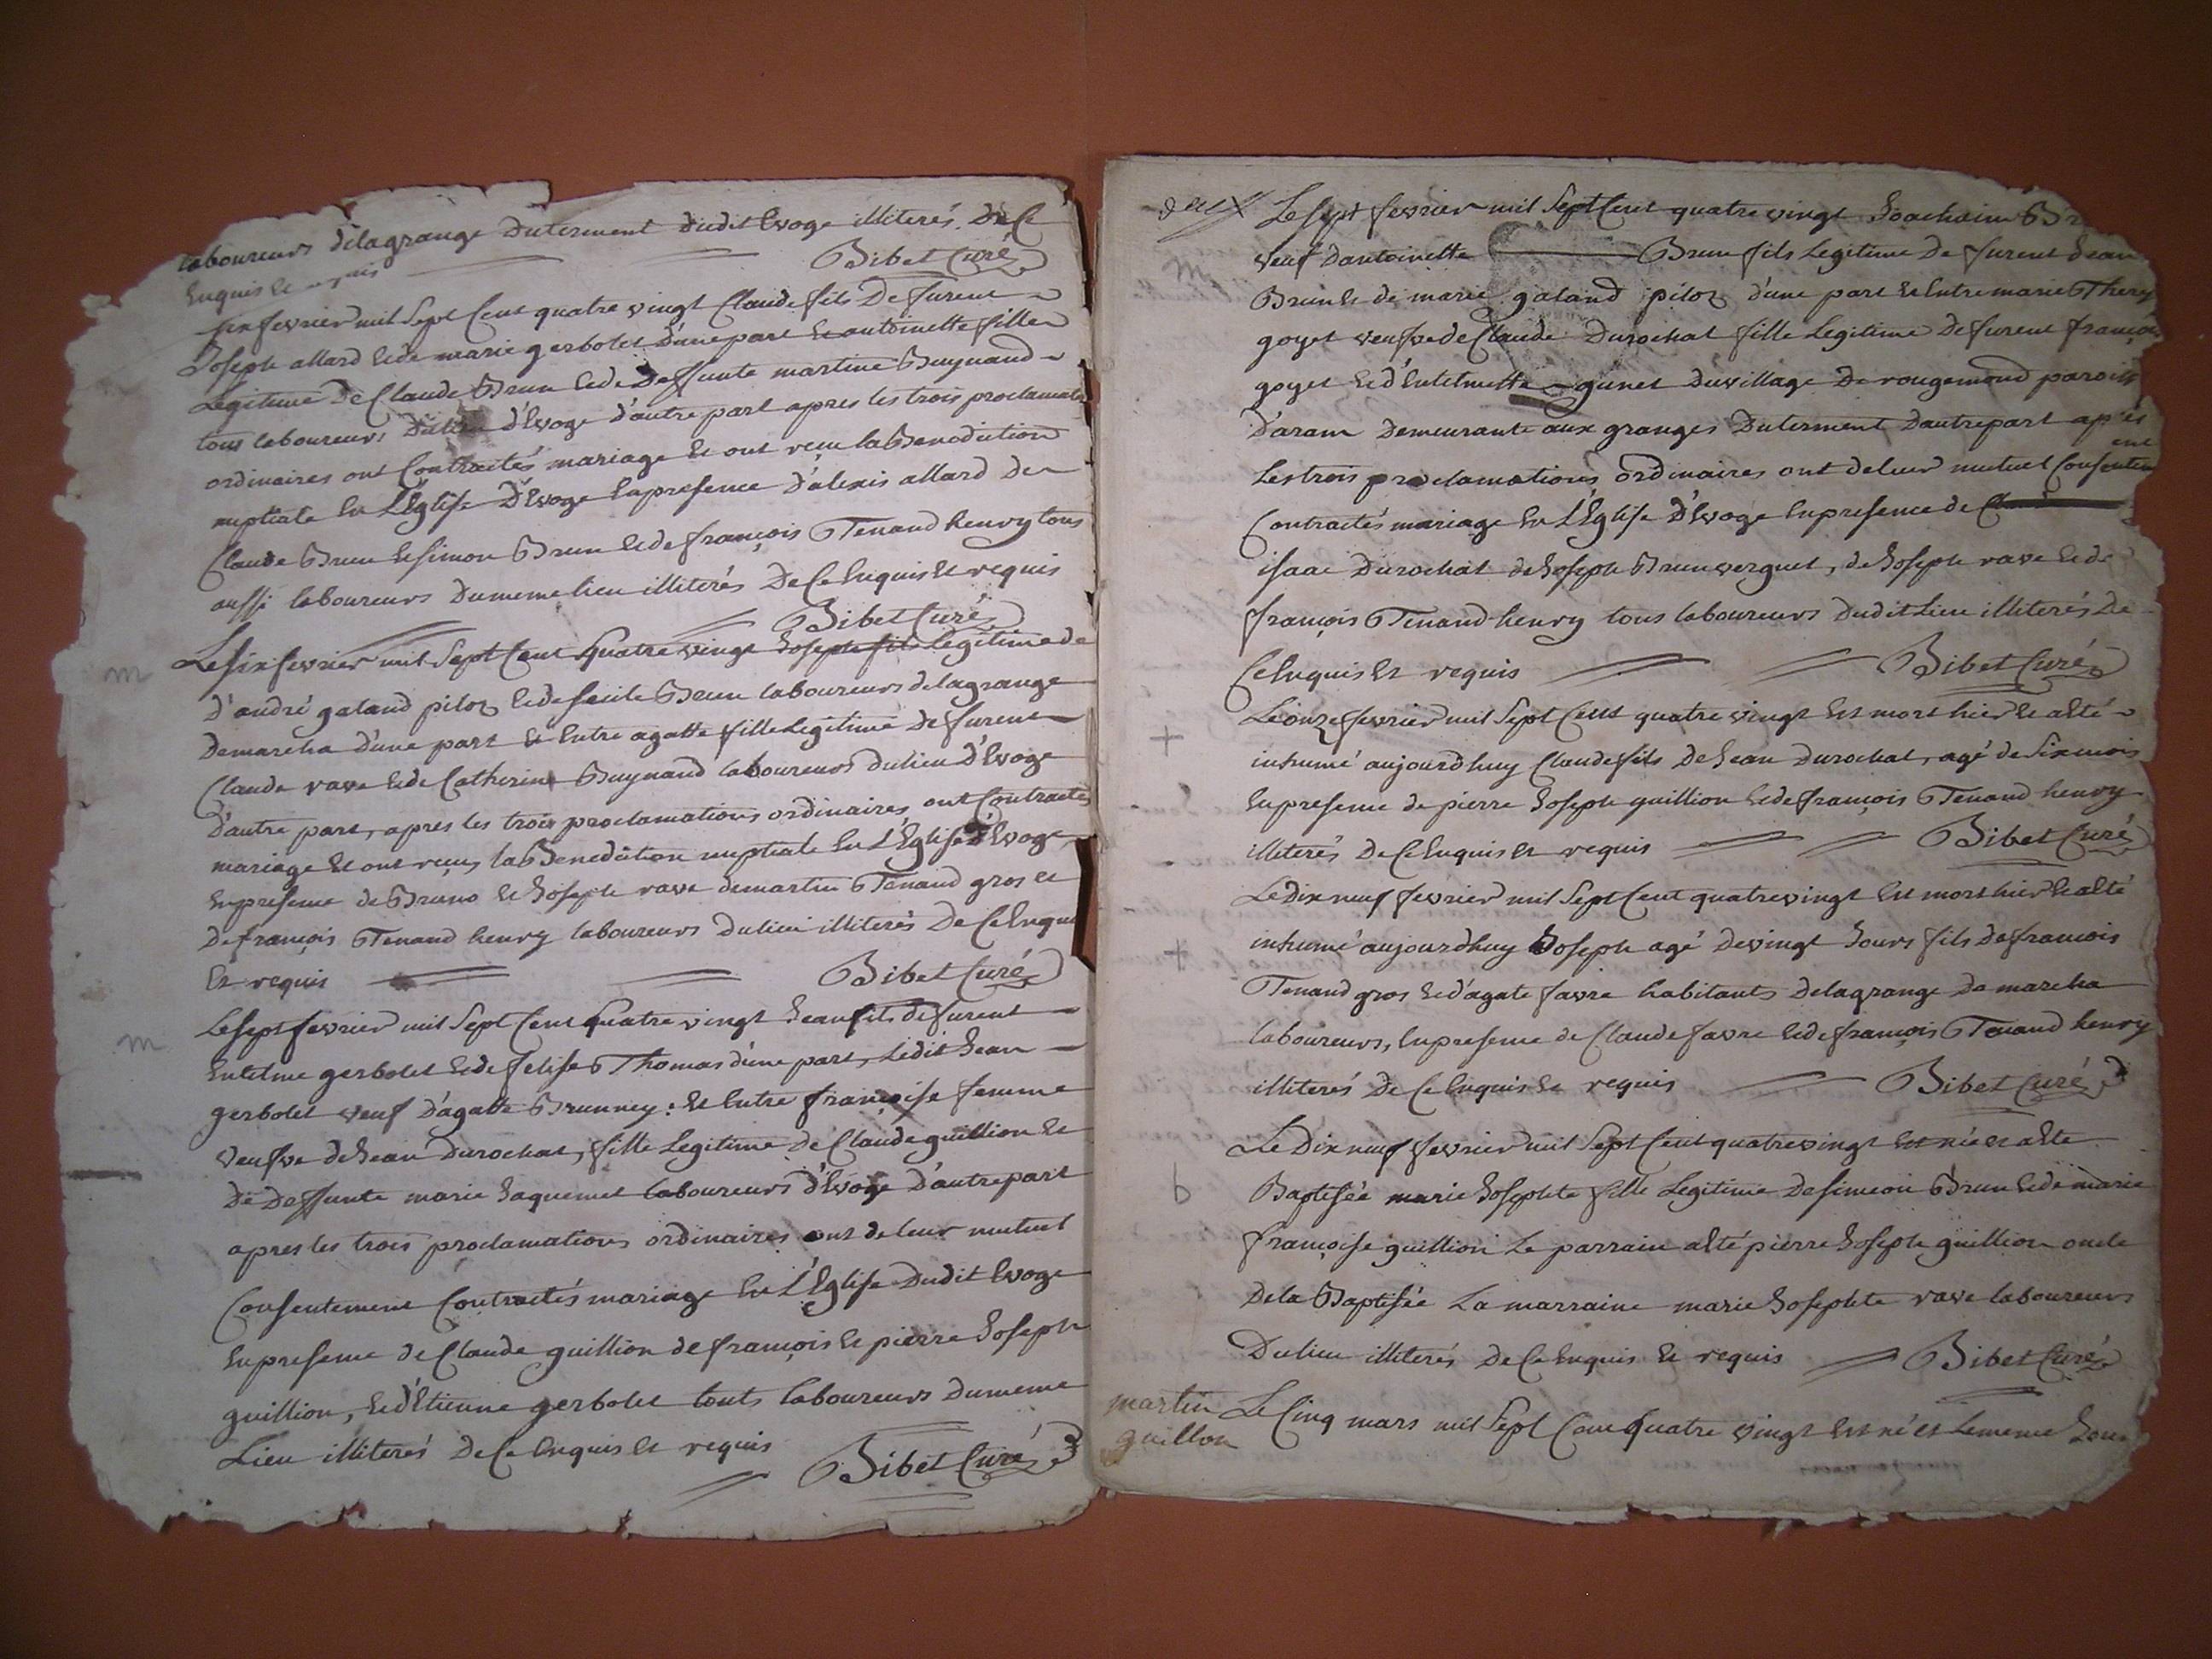 laboureurs delagrange duterment dudit Evoge illiterés De Ce
Enquis et requis Bibet Curé
six fevrier mil Sept Cent quatre vingt Claude fils De furent
Joseph allard et de marie gerbolet d'une part et antoinette fille
Legitime De Claude Brun et de Deffunte martine Buynand
tous laboureurs Dulieu d'Evoge d'autre part apres les trois proclamat
ordinaires ont Contractés mariage et ont reçu la Benediction
nuptiale En L'Eglise D'Evoge En presence d'alexis allard de
Claude Brun et simon Brun et de françois Tenand henry tous
aussi laboureurs du meme lieu illiterés De Ce Enquis et requis
Bibet Curé
m Le six fevrier mil Sept Cent Quatre vingt Joseph fils Legitime de
d'andré galand piloz et de Brun laboureurs delagrange
Demareha d'une part et Entre agatte fille Legitime De furent
Claude rave et de Catherine Buynand laboureurs du lieu d'Evoge
d'autre part, apres les trois proclamations ordinaires ont Contractés
mariage et ont reçu la Benediction nuptiale En L'Eglise d'Evoge
En presence de Bruno et Joseph rave de martin Tenand gros et
De françois Tenand henry laboureurs du lieu illiterés De Ce Enquis
Et requis Bibet Curé
m Le sept fevrier mil Sept Cent Quatre vingt Jean fils de furent
Entelme gerbolet et de felise Thomas d'une part, Ledit Jean
gerbolet veuf d'agatte Brunney: et Entre françoise femme
veufve de Jean Durochat, fille Legitime De Claude guillion et
De Deffunte marie Jaquemet laboureurs d'Evoge D'autre part
apres les trois proclamations ordinaires ont de leur mutuel
Consentement Contractés mariage En L'Eglise Dudit Evoge
En presence de Claude guillion de françois et pierre Joseph
guillion, et d'Etienne gerbolet touts laboureurs du meme
Lieu illiterés De Ce Enquis et requis
Bibet Curé
Le sept fevrier mil Sept Cent quatre vingt Joachaim Br
veuf dantoinette Brun fils Legitime De furent Jean
Brun et de marie galand piloz d'une part et Entre marie Therey
goyet veufve de Claude Durochat fille Legitime De furent françois
goyet et d'Entelmette gunet du village De rougemond paroiss
D'aram Demeurante aux granges Duterment Dautre part après
Les trois proclamations ordinaires ont de leur mutuel Consentem
ent
Contractés mariage En L'Eglise D'Evoge En presence de
isaac Durochat de Joseph Brun verguet, de Joseph rave et de
françois Tenand henry tous laboureurs dudit Lieu illiterés De
Ce Enquis Et requis Bibet Curé
+ Le onze fevrier mil Sept Cent quatre vingt Est mort hier et a Eté
inhumé aujourdhuy Claude fils De Jean Durochat, agé de Six mois
En presence de pierre Joseph guillion et de françois Tenand henry
illiterés De Ce Enquis et requis Bibet Curé
Le Dix neuf fevrier mil Sept Cent quatre vingt Est mort hier et a Eté
+ inhumé aujourdhuy Joseph agé de vingt Jours fils De françois
Tenand gros et d'agate favre habitants Delagrange De mareha
laboureurs, En presence de Claude favre et de françois Tenand henry
illiterés De Ce Enquis et requis Bibet Curé
Le Dix neuf fevrier mil Sept Cent quatre vingt Est née et a Eté
b Baptisée marie Josephte fille Legitime De simeon Brun et de marie
françoise guillion Le parrain a Eté pierre Joseph guillion oncle
De la Baptisée La marraine marie Josephte rave laboureurs
Du lieu illiterés De Ce Enquis Et requis Bibet Curé
martin guillon Le Cinq mars mil Sept Cent Quatre vingt Est né et Le meme Jour